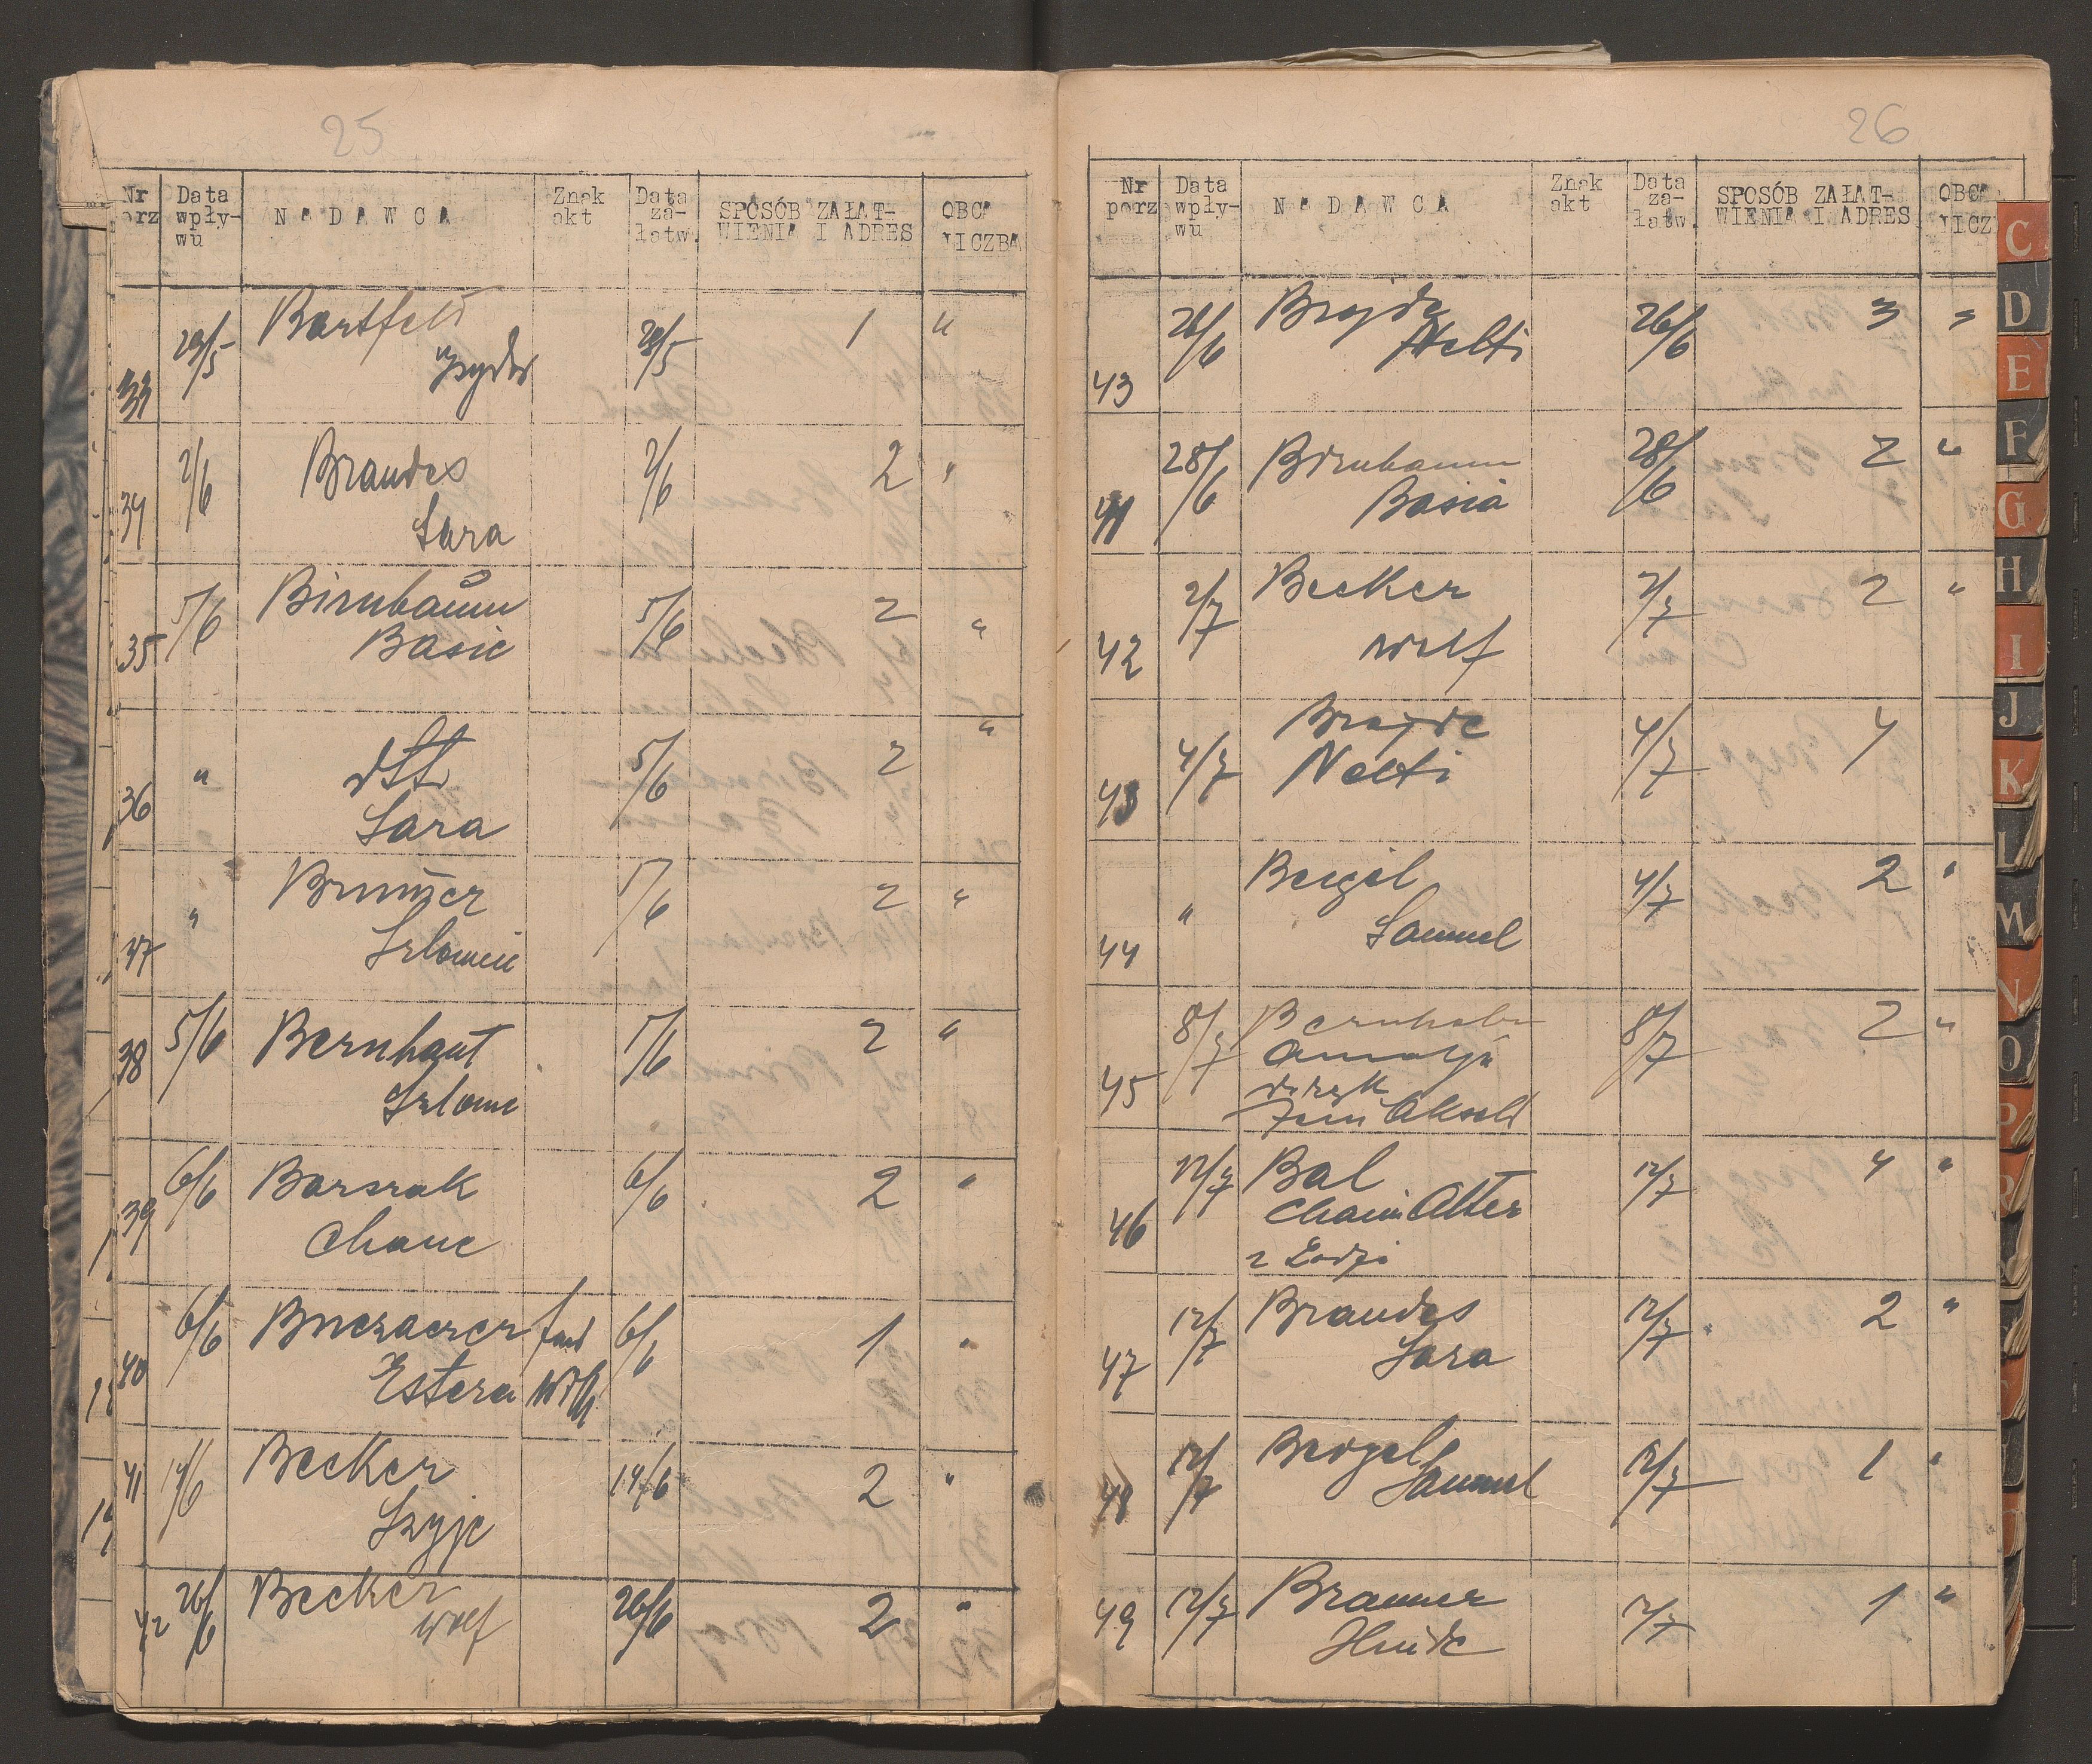 25
Nr porz
Data wpły- wu
NADAWCA
Znak akt
Data za- łatw.
SPOSÓB ZAŁAT- WIENIA I ADRES
OBCA LICZBA
33 29/5 Bartfeld 29/5 1 "
34 2/6 Brandes 2/6 2 "
Sara
35 5/6 Birnbaum 5/6 2 "
Basie
36 " dtto 5/6 2 "
Sara
" 5/6 2 "
38 5/6 Bernhaut 5/6 2 "
Szlome
39 6/6 6/6 2 "
Chane
40 6/6 6/6 1 "
Estera
41 14/6 Becker 14/6 2 "
Szyje
42 26/6 Becker 26/6 2 "
Wolf
26
Nr porz
Data wpły- wu
NADAWCA
Znak akt
Data za- łatw.
SPOSÓB ZAŁAT- WIENIA I ADRES
OBCA LICZ
43 26/6 Brajde 26/6 3 "
Netti
41 28/6 Birnbaum 28/6 2 "
Basia
42 2/7 Becker 2/7 2 "
Wolf
43 4/7 Brajde 4/7 4
Netti
44 " 4/7 2 "
Samuel
45 8/7 8/7 2 "
46 12/7 Bal 12/7 4 "
Chaim Alter
z Łodzi
47 12/7 Brandes 12/7 2 "
Sara
48 12/7 12/7 1 "
Samuel
49 12/7 12/7 1 "
Hinde
C
D
E
F
G
H
I
J
K
L
M
N
O
P
R